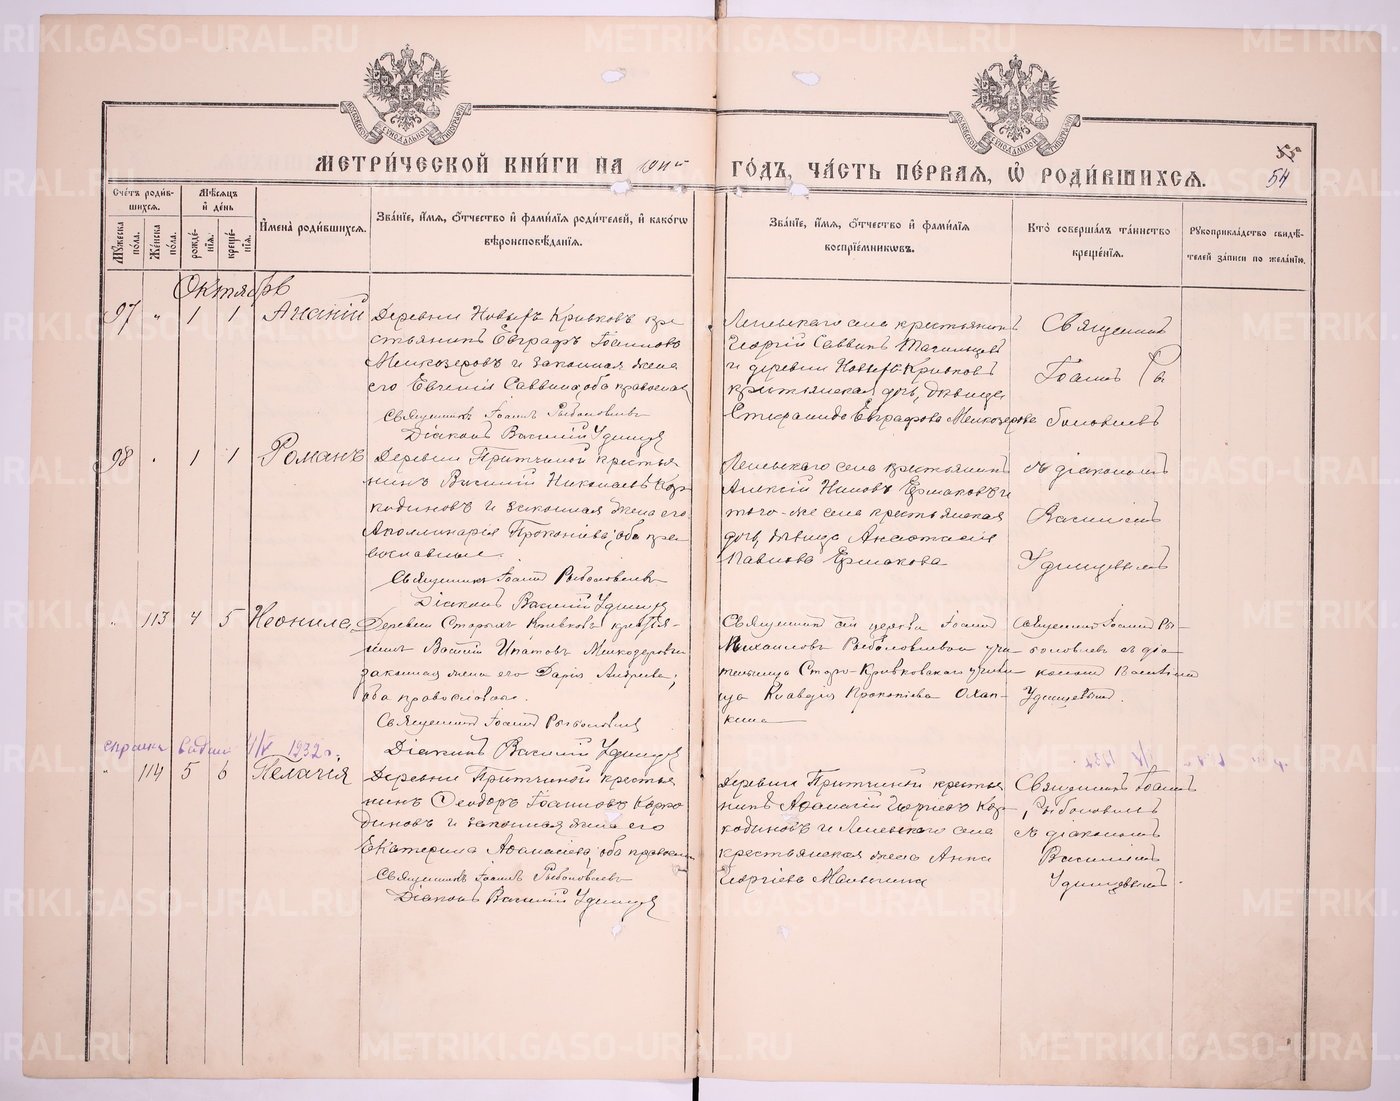 МЕТРИ́ЧЕСКОЙ КНИ́ГИ НА 1911 ГО́ДЪ, ЧА́СТЬ ПЕ́РВАЯ, Ѽ РОДИ́ВШИХСЯ.
55
54
Сче́тъ роди́вшихся.
Му́жеска по́ла.
Же́нска по́ла.
Мѣ́сяцъ и де́нь
рожде́нія.
креще́нія.
Имена̀ роди́вшихся.
Зва́ніе, и́мя, ѻ́тчество и фами́лія роди́телей, и како́гѡ вѣроисповѣ́данія.
Зва́ніе, и́мя, ѻ́тчество и фами́лія воспріе́мниковъ.
Кто̀ соверша́лъ та́инство креще́нія.
Рукоприкла́дство свидѣ́телей за́писи по жела́нію.
Октябрь
97 " 1 1 Ананій
Деревни Новыхъ Кривковъ кре
стьянинъ Евграфъ Іоанновъ
Мелкозеровъ и законная жена
его Евгенія Саввина, оба православ
Священникъ Іоаннъ Рыболовлевъ
Діаконъ Василій Удинцев
крестьянинъ
Георгій Саввинъ
и деревни Новыхъ-Кривковъ
крестьянская дочь, дѣвица
Евграфова Мелкозерова
Священникъ
Іоаннъ Ры
боловлевъ
98 " 1 1 Романъ
Деревни Притчиной крестья
нинъ Василій Николаевъ Кор
кодиновъ и законная жена его
Аполлинарія Прокопіева, оба пра
вославные.
Священникъ Іоаннъ Рыболовлевъ
Діаконъ Василій Удинцев
села крестьянинъ
Алексій Ермаковъ и
того-же села крестьянская
дочь, дѣвица Анастасія
Павлова Ермакова
съ діакономъ
Василіемъ
Удинцевымъ
" 113 4 5 Неонила
Деревни Старыхъ Кривковъ крестья-
нинъ Василій Ипатовъ Мелкозеровъ и
законная жена его Дарія Андреева,
оба православные.
Священникъ Іоаннъ Рыболовлев
Діаконъ Василій Удинцев
Священникъ сей церкви Іоаннъ
Михаиловъ Рыболовлевъ и учи-
тельница Старо-Кривковскаго училы
ща Клавдія Прокопіева Охап-
кина
Священникъ Іоаннъ Ры-
боловлевъ съ діа-
кономъ Василіемъ
Удинцевымъ.
справка выдана 4/V 1932 г.
" 114 5 6 Пелагія
Деревни Притчиной крестья
нинъ Ѳеодоръ Іоанновъ Корко
диновъ и законная жена его
Екатерина Аѳанасіева, оба православн
Священникъ Іоаннъ Рыболовлевъ
Діаконъ Василій Удинцев
Деревни Притчиной крестья
нинъ Аѳанасій Кор
кодиновъ и села
крестьянская жена Анна
Георгіева Малыгина
Священникъ Іоаннъ
Рыболовлевъ
съ діакономъ
Василіемъ
Удинцевымъ.
METRIKI.GASO-URAL.RU